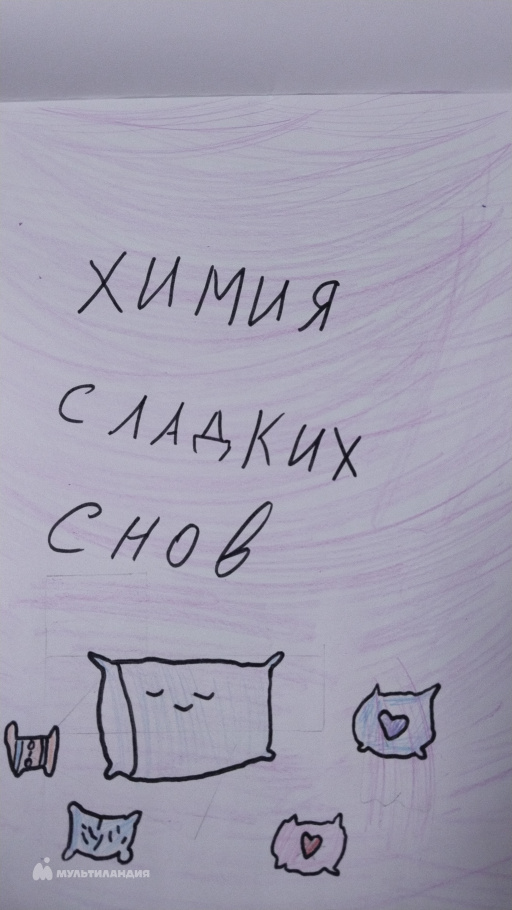 ХИМИЯ
СЛАДКИХ
СНОВ
МУЛЬТИЛАНДИЯ